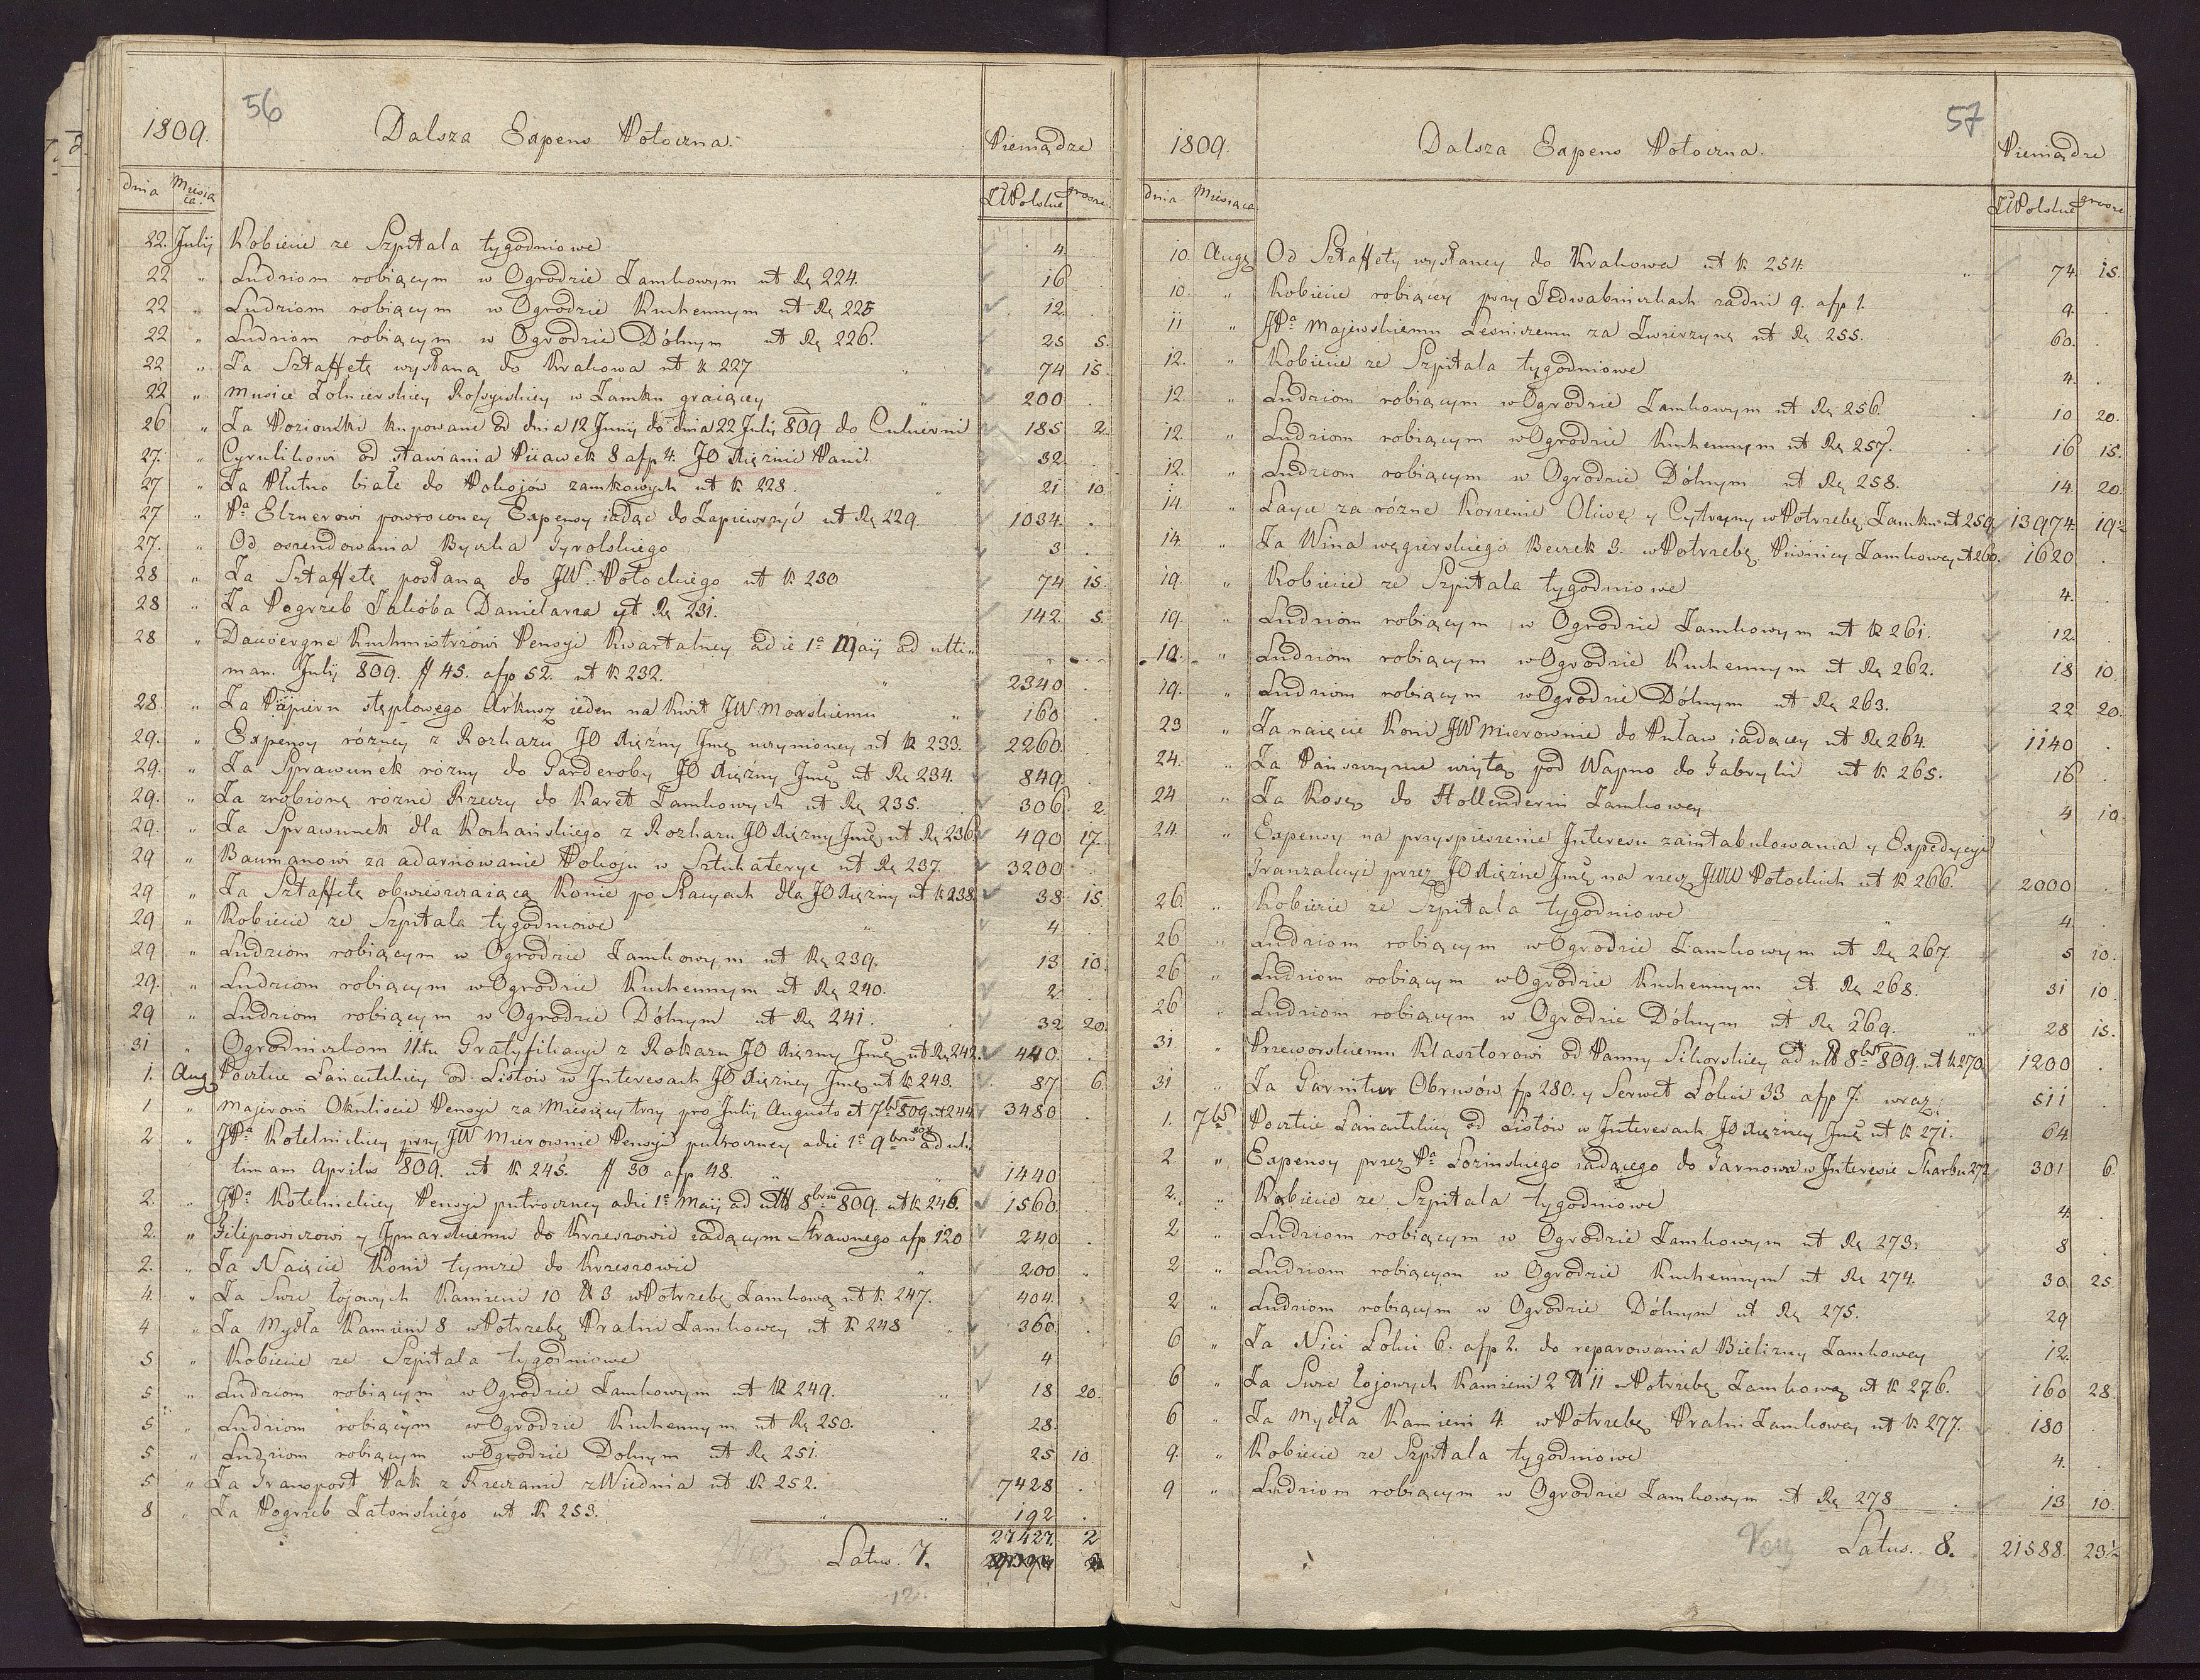 56
1809. Dalsza Expens Potoczna. Pieniądze
dnia Miesiąca. Zł Polskie grosze.
22. July Kobiecie ze Szpitala tygodniowe 4
22 " Ludziom robiącym w Ogrodzie Zamkowym ut Rę 224. 16
22 " Ludziom robiącym w Ogrodzie Kuchennym ut Rę 225 12.
22 " Ludziom robiącym w Ogrodzie Dólnym ut Rę 226. 25 5.
22 " Za Sztaffetę wysłaną do Krakowa ut K 227 74 15.
22 " Musice Zolnierskiey Rossyiskiey w Zamku graiącey 200
26 " Za Poziomki kupowane od dnia 12 Junij do dnia 22 July 809 do Cukierni 185 2.
27. " Cyrulikowi od stawiania Piiawek 8 a fp 4. JO Xiężnie Pani. 32.
27 " Za Płutno białe do Pokojów zamkowych ut K 228. 21 10
27 " Pa Elznerowi powroconey Expensy iadąc do Zapiewrzyć ut Rę 229. 1034.
27. " Od oczendowania Byczka Tyrolskiego 3
28 " Za Sztaffetę posłaną do JW. Potockiego ut K 230 74 15.
28 " Za Pogrzeb Jakóba Danielarza ut Rę 231. 142. 5.
28 " Dauvergne Kuchmistrzowi Pensyi Kwartalney a die 1a Maij ad ulti-
man. July 809. # 45. a fp 52. ut K 232. 2340
28. " Za Papieru stęplowego Arkusz ieden na Kwit JW. Morskiemu 160
29. " Expensy rózney z Rozkazu JO Xiężny Jmę uczynioney ut K 233. 2260.
29. " Za Sprawunek rózny do Garderoby JO Xiężny Jmę ut Rę 234. 849.
29. " Za zrobione rózne Rzeczy do Karet Zamkowych ut Rę 235. 306 2.
29. " Za Sprawunek dla Kochańskiego z Rozkazu JO Xiężny Jmę ut Rę 236. 490 17.
29 " Baumanowi za adarniowanie Pokoju w Sztukaterye ut Rę 237. 3200
29 " Za Sztaffetę obwieszczaiącą Konie po Stacyach dla JO Xiężny ut K 238. 38 15.
29 " Kobiecie ze Szpitala tygodniowe 4
29 " Ludziom robiącym w Ogrodzie Zamkowym ut Rę 239. 13 10.
29. " Ludziom robiącym w Ogrodzie Kuchennym ut Rę 240. 2
29 " Ludziom robiącym w Ogrodzie Dólnym ut Rę 241. 32 20.
31 " Ogrodniczkom 11tu Gratyfikacyi z Rozkazu JO Xiężny Jmę ut Rę 242. 440
1. Aug Poczcie Łancutskiey od Listów w Interesach JO Xiężney Jmę ut K 243. 87 6.
1 " Majerowi Okuliscie Pensyi za Miesięcy trzy pro July Augusto et 7bris 809 ut 244. 3480
2 " JPa Kotelnickiey przy JW Mierownie Pensyi pułroczney a die 1a 9bris 808 ad ul-
timam Aprilis 809. ut K 245. # 30 a fp 48. 1440
2. " JPa Kotelnickiey Pensyi pułroczney a die 1a Maij ad ult 8bris 809. ut K 246. 1560.
2. " Filipowiczowi y Jgnarskiemu do Krzeszowic iadącym Strawnego a fp 120 240
2. " Za Naięcie Koni tymze do Krzeszowic 200
4. " Za Swic łojowych Kamieni 10 ℔ 3 w Potrzebę Zamkową ut K. 247. 404.
4 " Za Mydła Kamieni 8 w Potrzebę Pralni Zamkowey ut K 248 360
5 " Kobiecie ze Szpitala tygodniowe 4
5 " Ludziom robiącym w Ogrodzie Zamkowym ut K 249. 18 20.
5 " Ludziom robiącym w Ogrodzie Kuchennym ut Rę 250. 28.
5 " Ludziom robiącym w Ogrodzie Dolnym ut Rę 251. 25 10.
5 " Za Transport Pak z Rzeczami z Wiednia ut K 252. 7428
8 " Za Pogrzeb Zatońskiego ut K 253. 192
27427. 2
Latus. 7.
12.
57
1809. Dalsza Expens Potoczna. Pieniądze
dnia Miesiąca Zł Polskie grosze
10. Augę Od Sztaffety wysłaney do Krakowa ut K 254. 74. 15.
10. " Kobiecie robiącey przy Jedwabniczkach za dni 9. a fp 1. 9.
11 " JPa Majewskiemu Lesniczemu za Zwierzynę ut Rę 255. 60.
12. " Kobiecie ze Szpitala tygodniowe 4.
12. " Ludziom robiącym w Ogrodzie Zamkowym ut Rę 256. 10 20.
12. " Ludziom robiącym w Ogrodzie Kuchennym ut Rę 257. 16 15.
12. " Ludziom robiącym w Ogrodzie Dólnym ut Rę 258. 14. 20.
14. " Łayce za rózne Korzenie Oliwę y Cytryny w Potrzebę Zamku ut 259. 13974. 19½
14. " Za Wina węgierskiego Beczek 3. w Potrzebę Piwnicy Zamkowey ut 260. 1620
19. " Kobiecie ze Szpitala tygodniowe 4.
19. " Ludziom robiącym w Ogrodzie Zamkowym ut K 261. 12.
19. " Ludziom robiącym w Ogrodzie Kuchennym ut Rę 262. 18 10.
19. " Ludziom robiącym w Ogrodzie Dólnym ut Rę 263. 22 20.
23 " Za naięcie Koni JW Mierownie do Puław iadącey ut Rę 264. 1140
24. " Za Pańszczyznę wziętą pod Wapno do Fabryki ut K 265. 16
24 " Za Kosę do Hollenderni Zamkowey 4 10
24. " Expensy na przyspieszenie Interesu zaintabulowania y Expedycyi
Tranzakcyi przez JO Xiężnę Jmę na rzecz JWW Potockich ut K 266. 2000
26. " Kobiecie ze Szpitala tygodniowe 4.
26 " Ludziom robiącym w Ogrodzie Zamkowym ut Rę 267. 5 10.
26 " Ludziom robiącym w Ogrodzie Kuchennym ut Rę 268. 31 10.
26 " Ludziom robiącym w Ogrodzie Dólnym ut Rę 269. 28 15.
31 " Przeworskiemu Klasztorowi od Panny Sikorskiey ad ult 8bris 809. ut K 270. 1200
31 " Za Garnitur Obrusów fp 280. y Serwet Łokci 33 a fp 7. wraz 511
1. 7bris Poczcie Łancutskiey od Listów w Interesach JO Xiężney Jmę ut K 271. 64.
2. " Expensy przez Pa Łozinskiego iadącego do Tarnowa w Interesie Skarbu 272 301 6.
2. " Kobiecie ze Szpitala tygodniowe 4.
2 " Ludziom robiącym w Ogrodzie Zamkowym ut Rę 273. 8
2 " Ludziom robiącym w Ogrodzie Kuchennym ut Rę 274. 30 25
2 " Ludziom robiącym w Ogrodzie Dólnym ut Rę 275. 29
6 " Za Nici Łokci 6. a fp 2. do reparowania Bielizny Zamkowey 12.
6 " Za Swic łojowych Kamieni 2 ℔ 11 w Potrzebę Zamkową ut K 276. 160 28.
6 " Za Mydła Kamieni 4. w Potrzebę Pralni Zamkowey ut K 277. 180
9. " Kobiecie ze Szpitala tygodniowe 4.
9 " Ludziom robiącym w Ogrodzie Zamkowym ut Rę 278 13 10.
Latus. 8. 21588. 23½